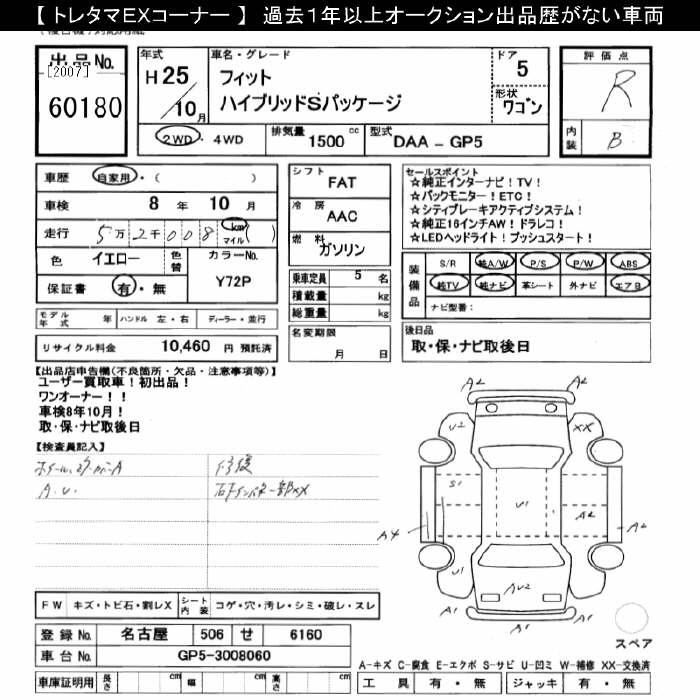 【 トレタマEXコーナー 】 過去１年以上オークション出品歴がない車両
出品No.
[2007]
60180
年式
H 25 / 10 月
車名・グレード
フィット
ハイブリッドSパッケージ
ドア
5
形状
ワゴン
2WD・4WD
排気量 1500 cc
型式 DAA - GP5
評価点
R
内装
B
車歴 自家用・( )
車検 8 年 10 月
走行 5万2千008 km マイル ( )
色 イエロー 色替
カラーNo.
Y72P
保証書 有・無
シフト
FAT
冷房
AAC
燃料
ガソリン
乗車定員 5 名
積載量 kg
総重量 kg
名変期限
月 日
セールスポイント
☆純正インターナビ！TV！
☆バックモニター！ETC！
☆シティブレーキアクティブシステム！
☆純正16インチAW！ドラレコ！
☆LEDヘッドライト！プッシュスタート！
装備品
S/R 純A/W P/S P/W ABS
純TV 純ナビ 革シート 外ナビ エアB
ナビ型番：
モデル年式 年 ハンドル 左・右 ディーラー・並行
リサイクル料金 10,460 円 預託済
後日品
取・保・ナビ取後日
【出品店申告欄(不良箇所・欠品・注意事項等)】
ユーザー買取車！初出品！
ワンオーナー！！
車検8年10月！
取・保・ナビ取後日
【検査員記入】
A.U.
修復
A2
A2
U2
XX
S1
U1
A2
A4
A2
U1
AU2
A1
A1
FW キズ・トビ石・割レX
シート内装 コゲ・穴・汚レ・シミ・破レ・スレ
スペア
登録No. 名古屋 506 せ 6160
車台No. GP5-3008060
A-キズ C-腐食 E-エクボ S-サビ U-凹ミ W-補修 XX-交換済
車庫証明用 長さ cm 幅 cm 高さ cm
工具 有・無 ジャッキ 有・無